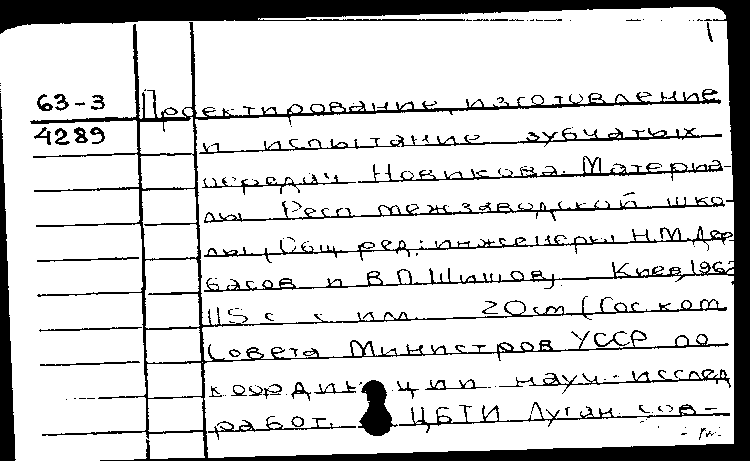 1
63-3 Проектирование, изготовление
4289 и испытание зубчатых
передач Новикова. Материа-
лы Респ межзаводской шко-
лы, Общ ред: инженеры Н.М.Дер
басов и В.П.Шишов, Киев, 1962
115 с с ил. 20см (Гос ком
Совета Министров УССР по
координации науч-исслед
работ. ЦБТИ Луган. сов-